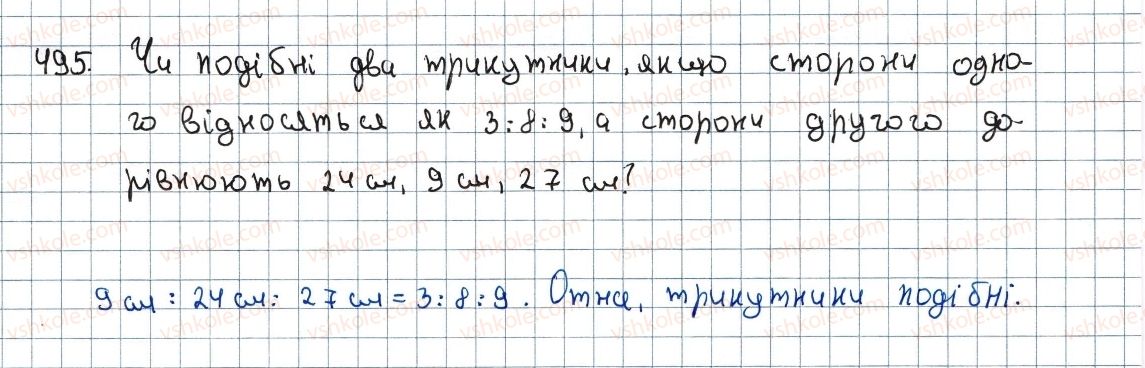 495. Чи подібні два трикутники, якщо сторони одно-
го відносяться як 3:8:9, а сторони другого до-
рівнюють 24 см, 9 см, 27 см?
9 см : 24 см : 27 см = 3:8:9. Отже, трикутники подібні.